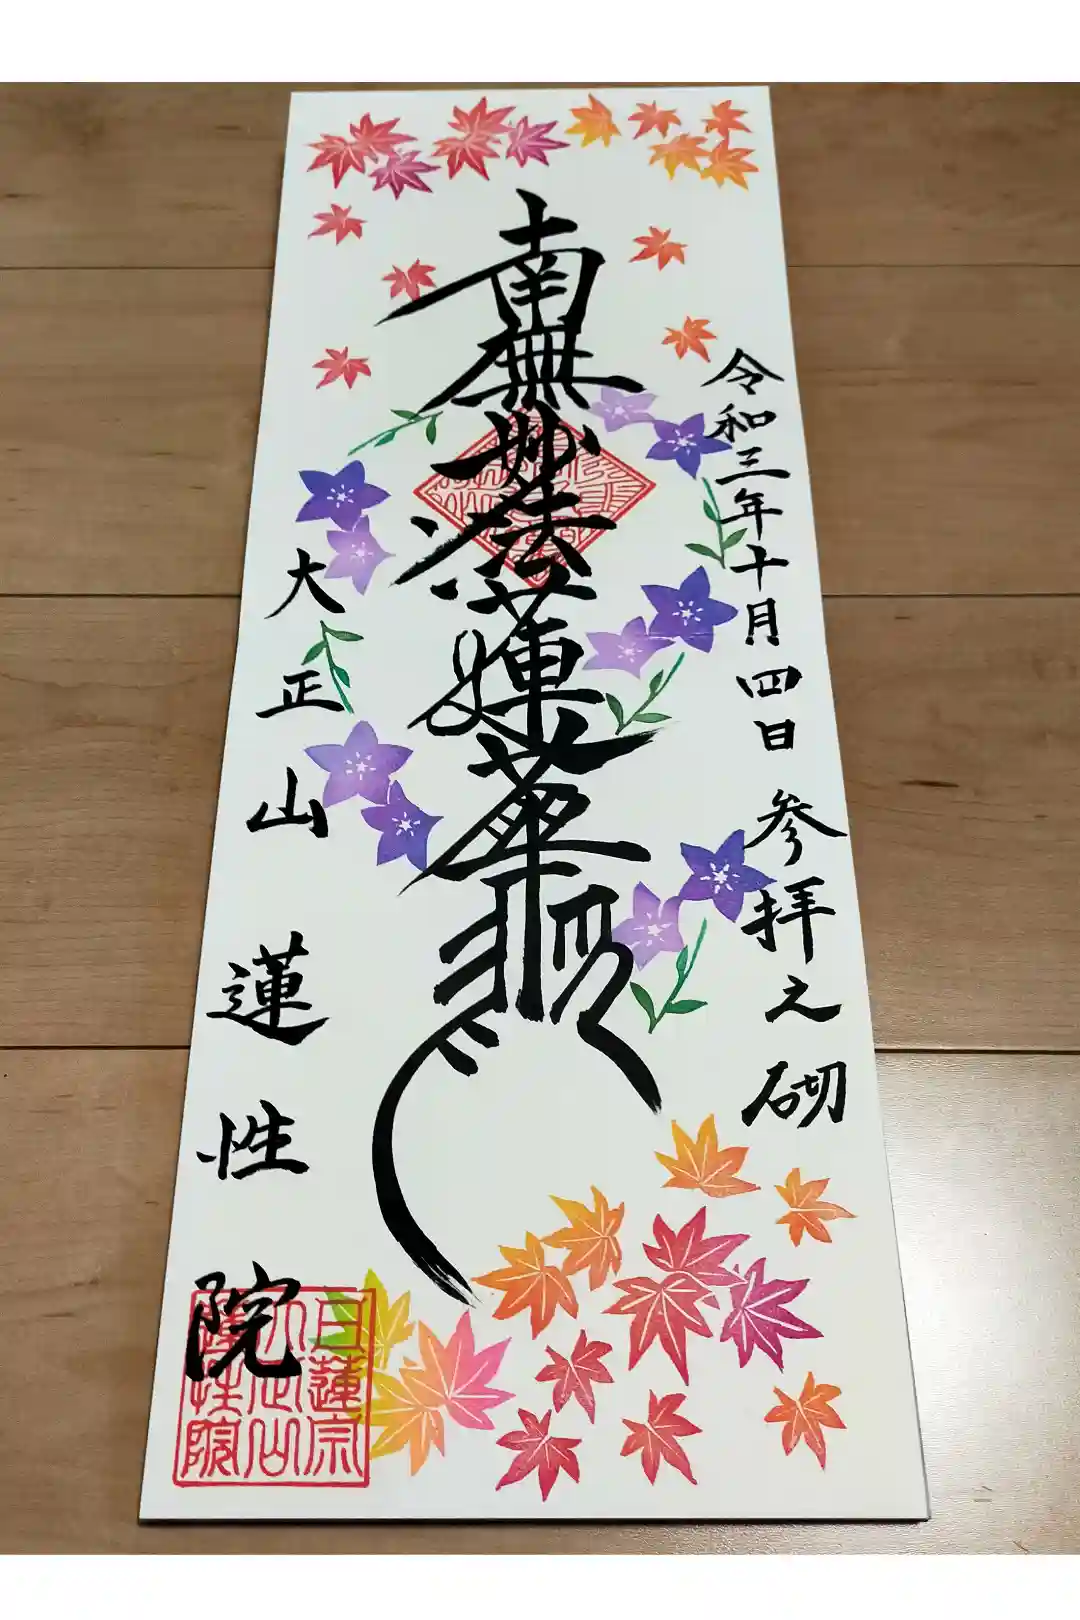 令和三年十月四日 参拝之砌
南無妙法蓮華経
大正山 蓮性院
日蓮宗
大正山
蓮性院